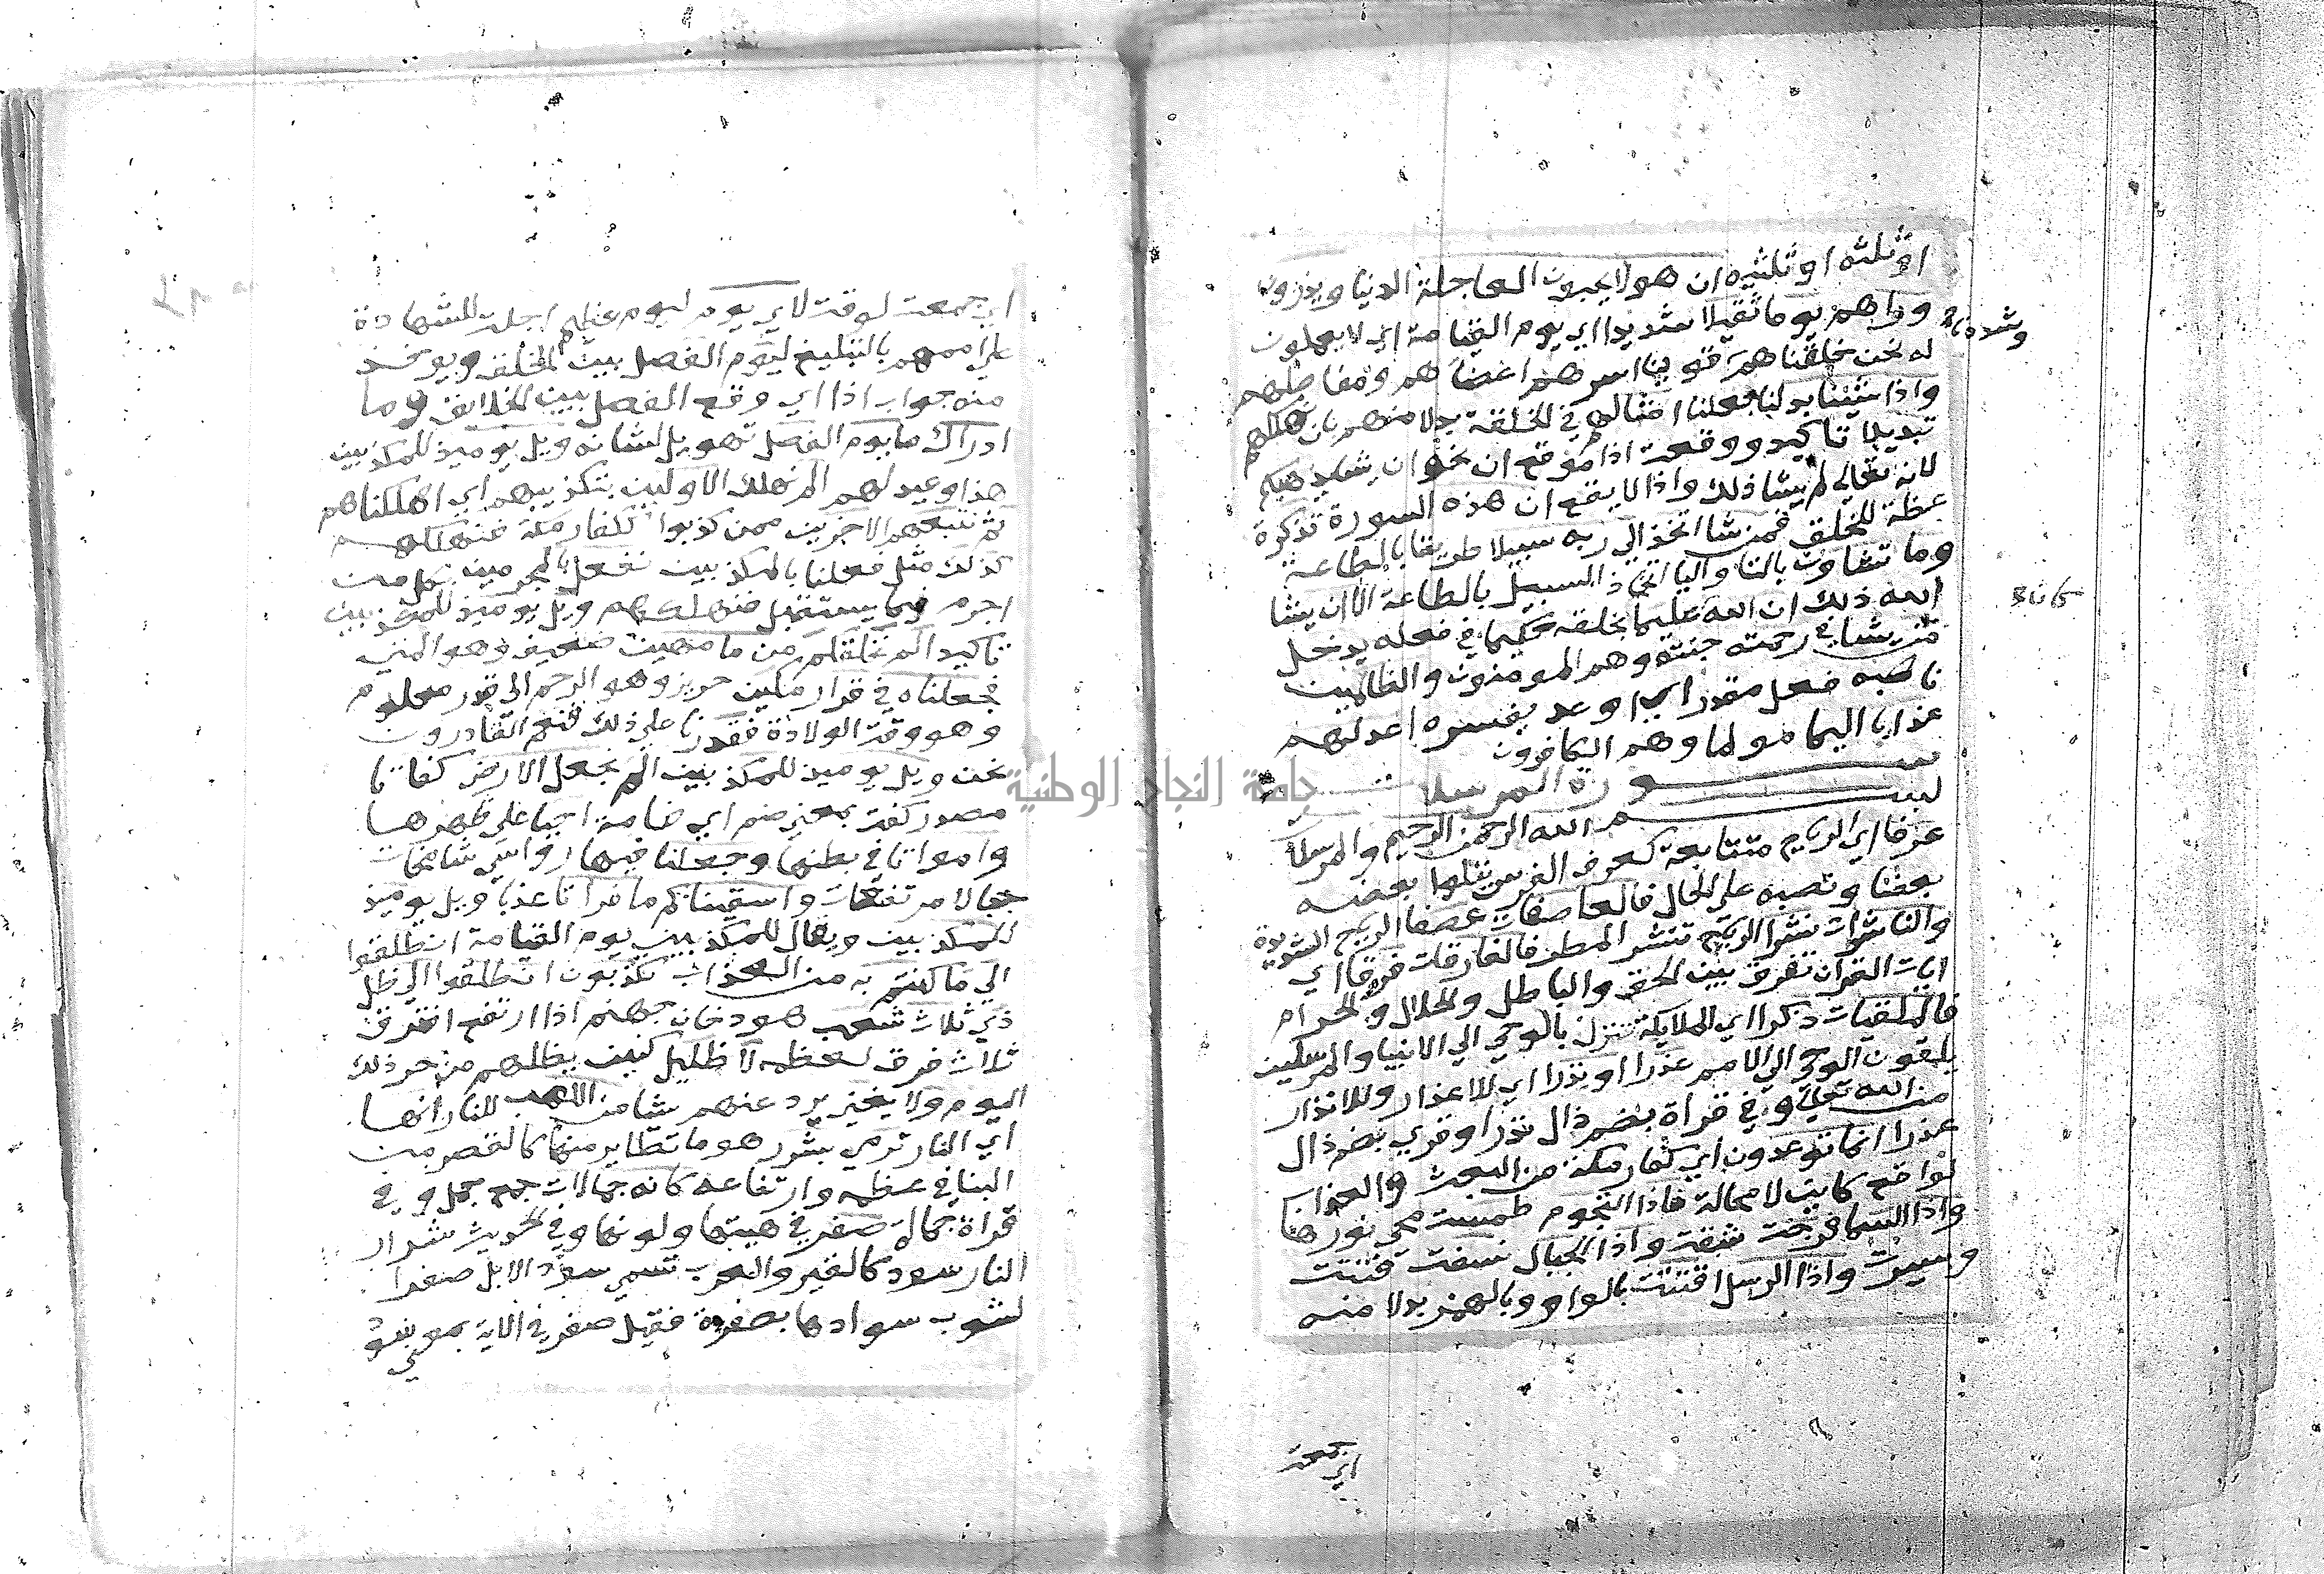 او ثلثه او ثلثيه ان هولا يحبون العاجلة الدنيا ويذرون
وراهم يوما ثقيلا شديدا اي يوم القيامة اي لا يعملون
له نحن خلقناهم قوينا اسرهم اعضاهم ومفاصلهم
واذا شينا بدلنا جعلنا امثالهم في الخلقة بدلا منهم بان نهلكهم
تبديلا تاكيد ووقعت اذا موقع ان نحو ان يشا يذهبكم
لانه تعالي لم يشا ذلك واذا لا يقع ان هذه السورة تذكرة
عظة للخلق فمن شا اتخذ الي ربه سبيلا طريقا بالطاعة
وما تشاون بالتا واليا اتخاذ السبيل بالطاعة الا ان يشا
الله ذلك ان الله عليما بخلقه حكيما في فعله يدخل
من يشا في رحمته جنته وهم المومنون والظالمين
ناصبه فعل مقدر اي وعد يفسره اعد لهم
عذابا اليما مولما وهم الكافرون
سورة المرسلات
بسم الله الرحمن الرحيم والمرسلات
عرفا اي الرياح متتابعة كعرف الفرس يتلوا بعضه
بعضا ونصبه علي الحال فالعاصفات عصفا الرياح الشديدة
والناشرات نشرا الرياح تنشر المطر فالفارقات فرقا اي
ايات القران تفرق بين الحق والباطل والحلال والحرام
فالملقيات ذكرا اي الملايكة تنزل بالوحي الي الانبيا والمرسلين
يلقون الوحي الي الامم عذرا او نذرا اي للاعذار وللانذار
من الله تعالي وفي قراة بضم ذال نذرا وقري بضم ذال
عذرا انما توعدون اي كفار مكة من البعث والعذاب
لواقع كاين لا محالة فاذا النجوم طمست محي نورها
واذا السما فرجت شقت واذا الجبال نسفت فتتت
وسيرت واذا الرسل اقتت بالواو وبالهمز بدلا منه
اي جمعت
وشدته
كاملة
اي جمعت لوقت لاي يوم ليوم عظيم اجلت للشهادة
علي اممهم بالتبليغ ليوم الفصل بين الخلق ويوخذ
منه جواب اذا اي وقع الفصل بين الخلايق وما
ادراك ما يوم الفصل تهويل لشانه ويل يوميذ للمكذبين
هذا وعيد لهم الم نهلك الاولين بتكذيبهم اي اهلكناهم
ثم نتبعهم الاخرين ممن كذبوا ككفار مكة فنهلكهم
كذلك مثل فعلنا بالمكذبين نفعل بالمجرمين بكل من
اجرم فيما يستقبل فنهلكهم ويل يوميذ للمكذبين
تاكيد الم نخلقكم من ما مهين ضعيف وهو المني
فجعلناه في قرار مكين حريز وهو الرحم الي قدر معلوم
وهو وقت الولادة فقدرنا علي ذلك فنعم القادرون
نحن ويل يوميذ للمكذبين الم نجعل الارض كفاتا
مصدر كفت بمعني ضم اي ضامة احيا علي ظهرها
وامواتا في بطنها وجعلنا فيها رواسي شامخات
جبالا مرتفعات واسقيناكم ما فراتا عذبا ويل يوميذ
للمكذبين ويقال للمكذبين يوم القيامة انطلقوا
الي ما كنتم به من العذاب تكذبون انطلقوا الي ظل
ذي ثلاث شعب هو دخان جهنم اذا ارتفع افترق
ثلاث فرق لعظمه لا ظليل كنين يظلهم من حر ذلك
اليوم ولا يغني يرد عنهم شيا من اللهب للنار انها
اي النار ترمي بشرر هو ما تطاير منها كالقصر من
البنا في عظمه وارتفاعه كانه جمالات جمع جمل وفي
قراة جمالة صفر في هيتها ولونها وفي الحديث شرار
النار سود كالقير والعرب تسمي سود الابل صفرا
لشوب سوادها بصفرة فقيل صفر في الاية بمعني سود
جامعة النجاح الوطنية